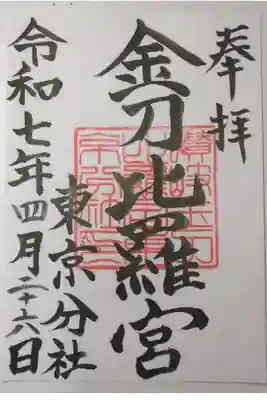 奉拝
金刀比羅宮
東京分社
令和七年四月二十六日